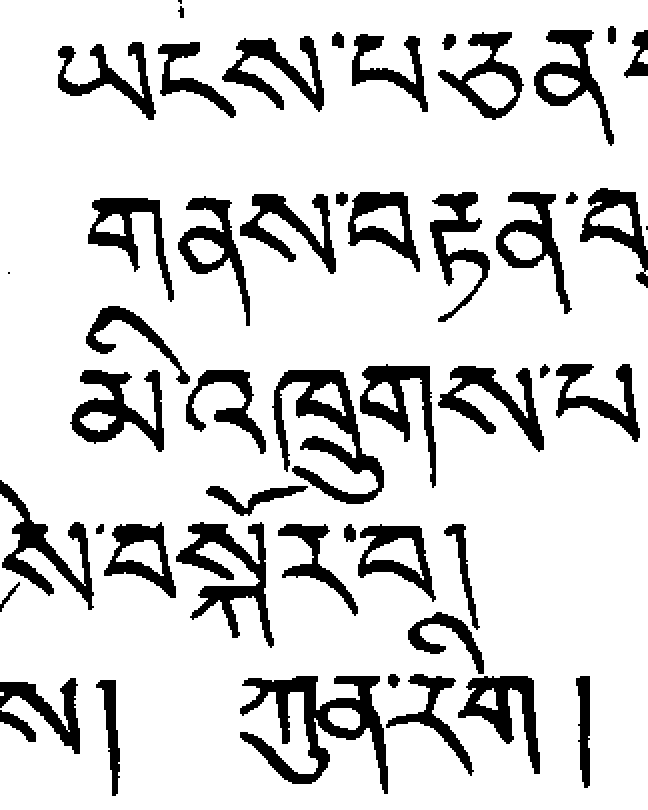 ཡངས་པ་ཅན་
གནས་བརྟན་
མི་འཁྲུགས་པ
བསྐོར་བ།
ས། ཀུན་རིག །